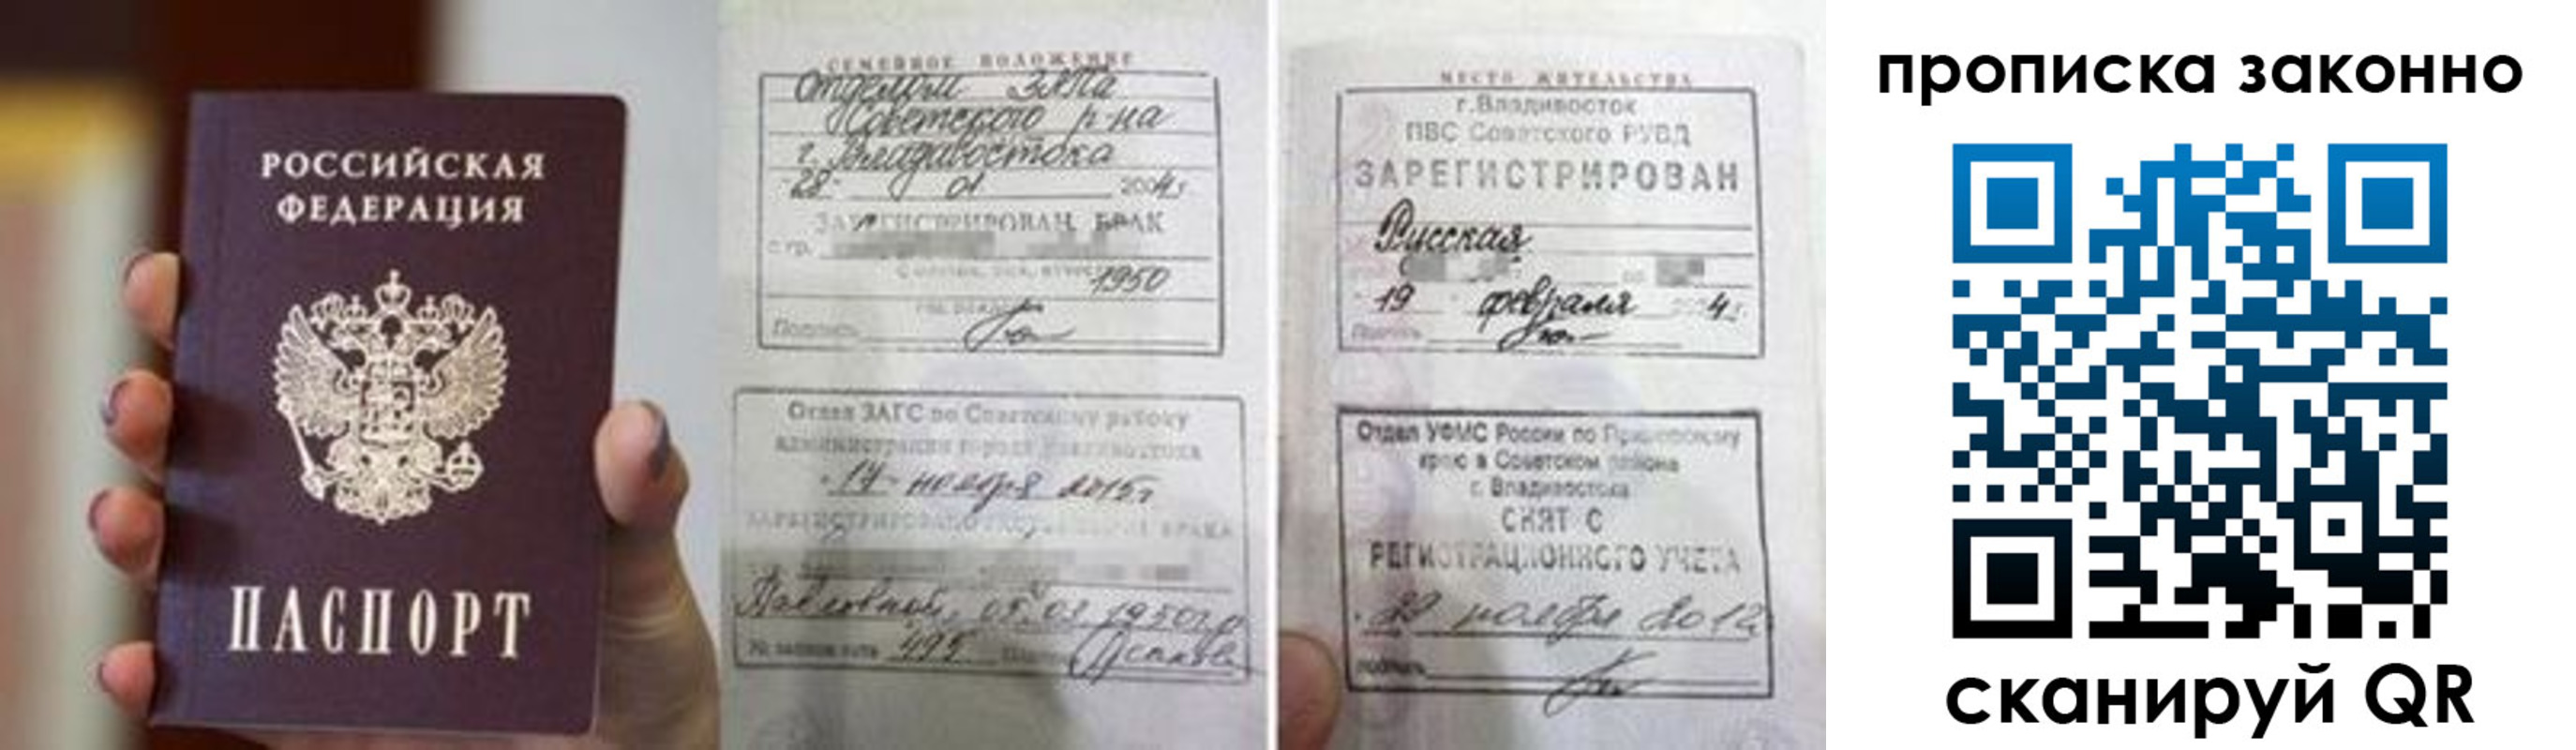 РОССИЙСКАЯ
ФЕДЕРАЦИЯ
ПАСПОРТ
СЕМЕЙНОЕ ПОЛОЖЕНИЕ
Отделом ЗАГСа
Советского р-на
г. Владивостока
"28" 01 2004 г.
ЗАРЕГИСТРИРОВАН БРАК
с гр.
1950
Подпись
Отдел ЗАГС по Советскому району
администрации города Владивостока
"17" ноября 2015 г.
Павловной, 05.03.1950 г.р
495
МЕСТО ЖИТЕЛЬСТВА
г.Владивосток
ПВС Советского РУВД
ЗАРЕГИСТРИРОВАН
Русская
19 февраля 4г.
Подпись
Отдел УФМС России по Приморскому
краю в Советском районе
г. Владивостока
СНЯТ С
РЕГИСТРАЦИОННОГО УЧЕТА
ноября 2012
подпись
прописка законно
сканируй QR